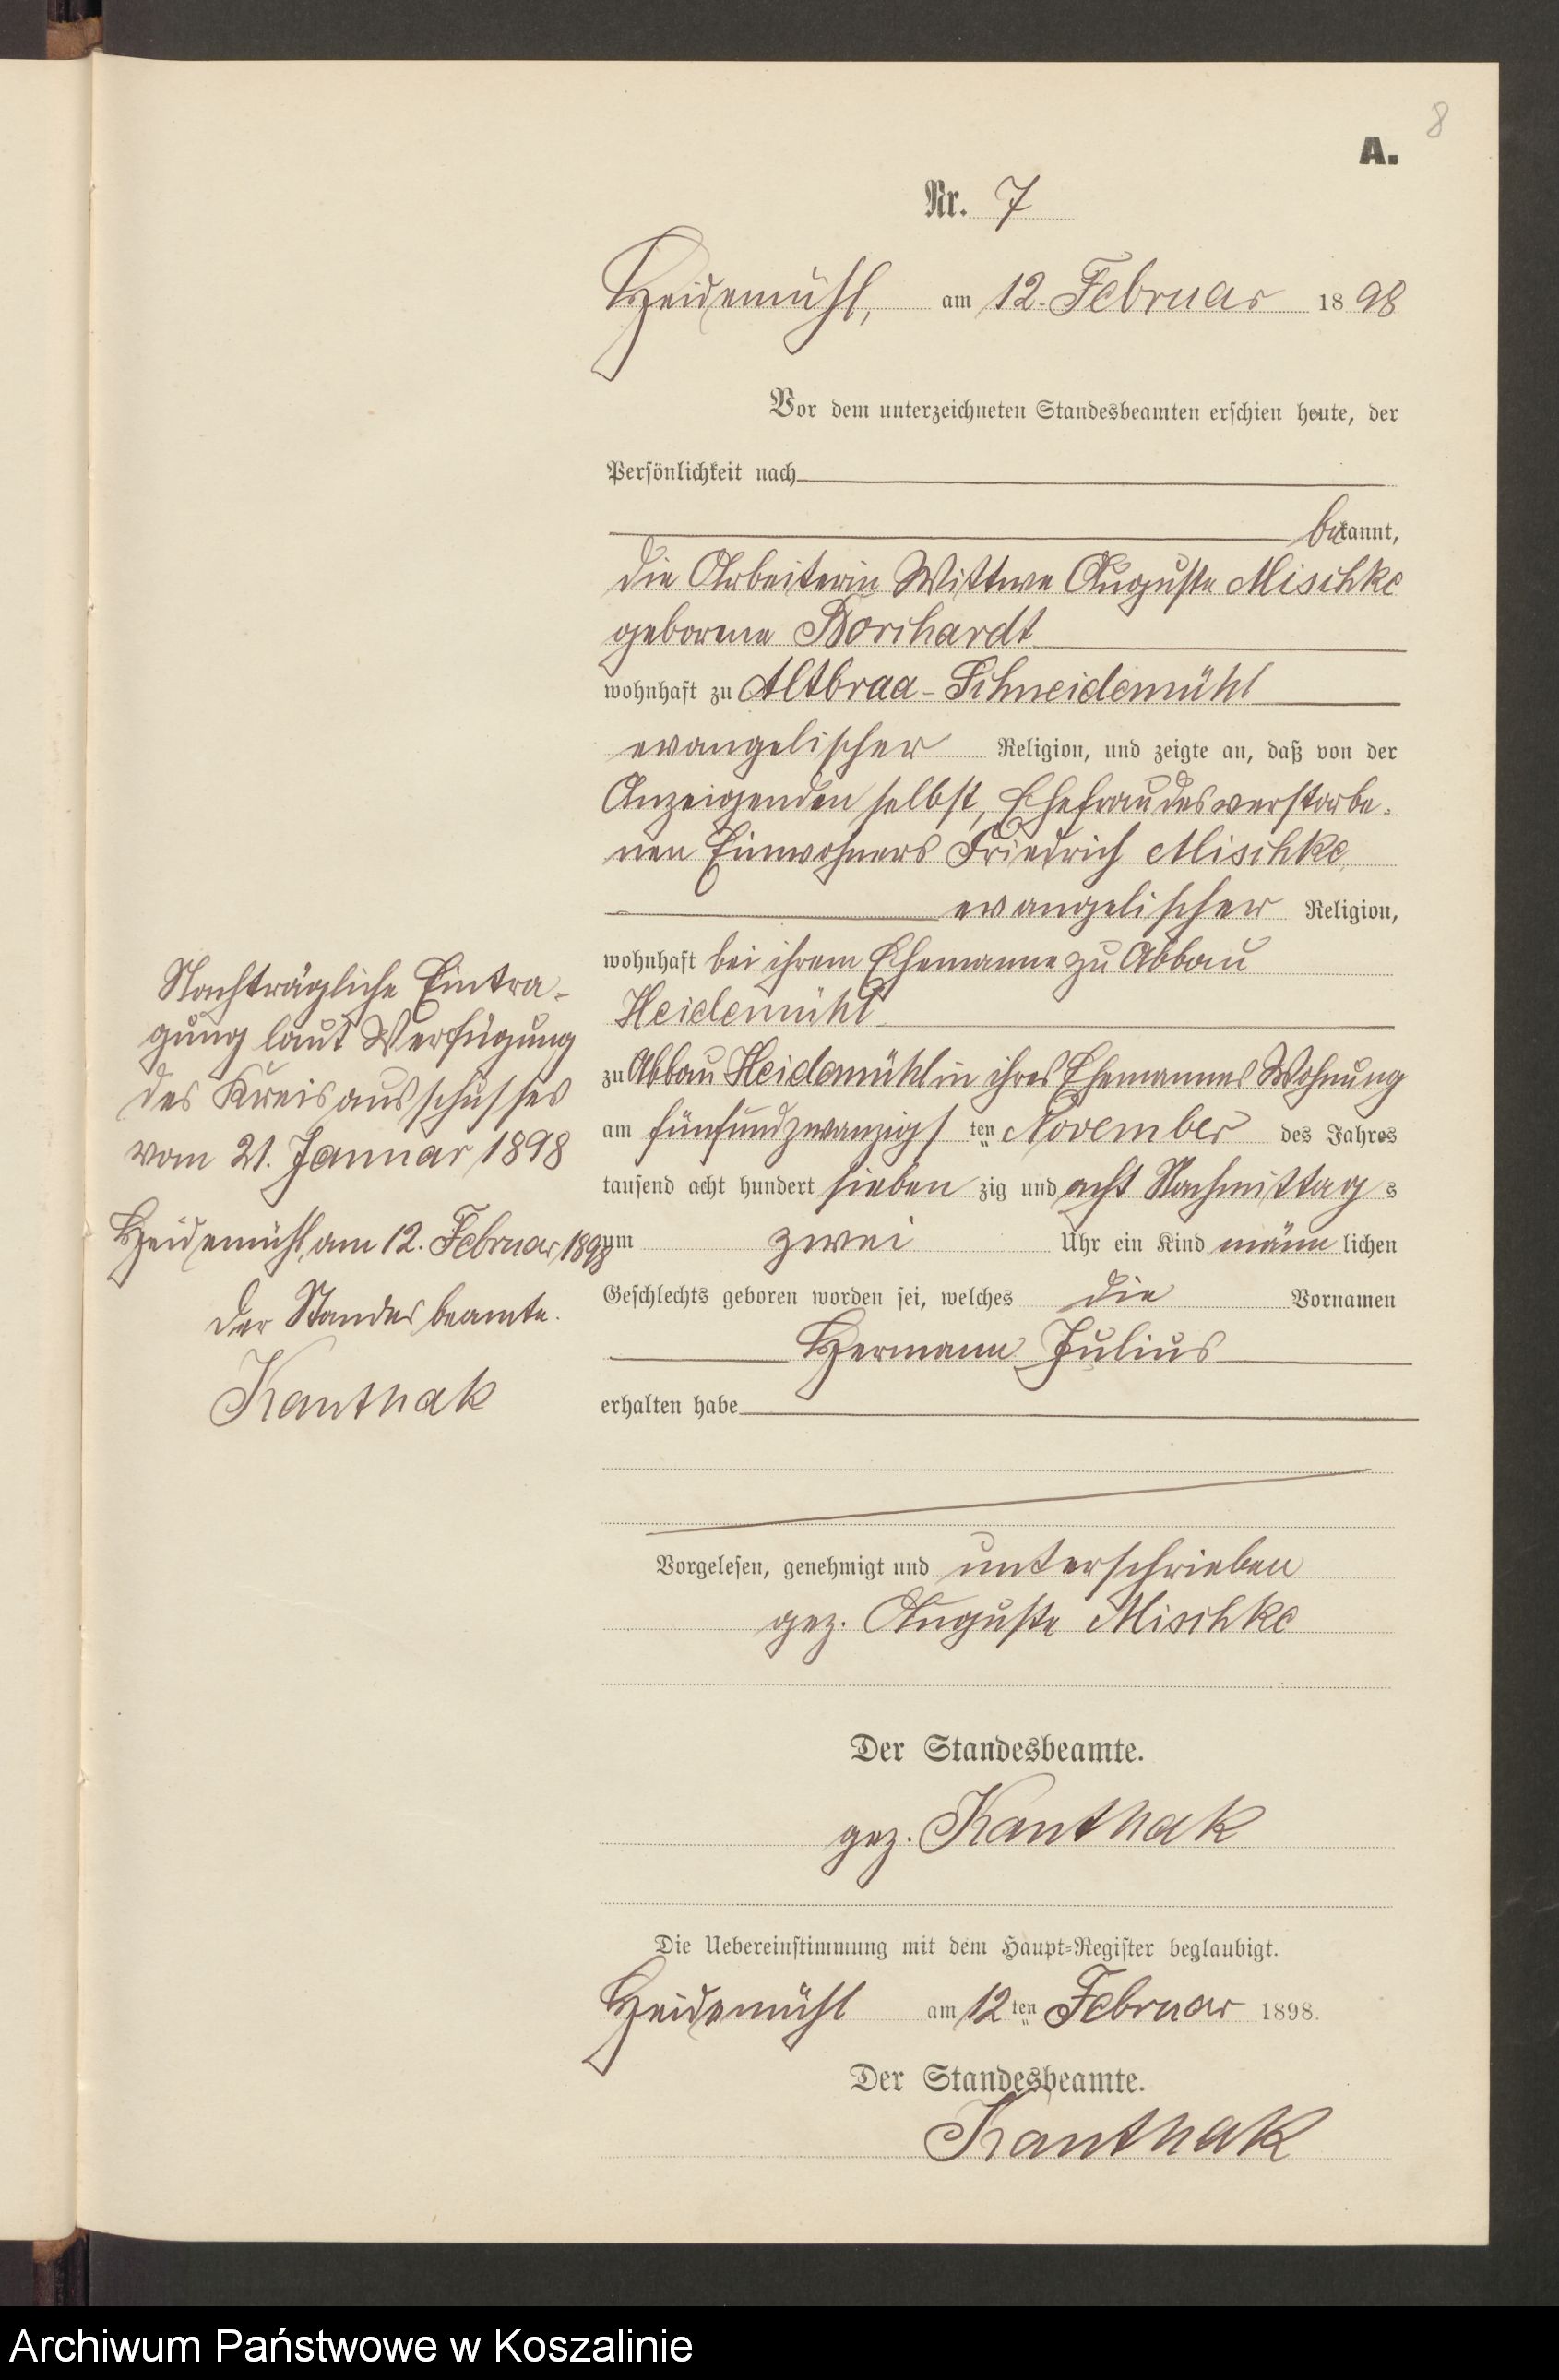 8
A.
Nr. 7
Heidemühl, am 12. Februar 1898
Vor dem unterzeichneten Standesbeamten erschien heute, der
Persönlichkeit nach
bekannt,
die Arbeiterin Wittwe Auguste Mischke
geborene Borchardt
wohnhaft zu Altbraa-Schneidemühl
evangelischer Religion, und zeigte an, daß von der
Anzeigenden selbst, Ehefrau des verstorbe-
nen Einwohners Friedrich Mischke
evangelischer Religion,
wohnhaft bei ihrem Ehemanne zu Abbau
Heidemühl
zu Abbau Heidemühl in ihres Ehemannes Wohnung
am fünfundzwanzigsten November des Jahres
tausend acht hundert siebenzig und acht Nachmittags
um zwei Uhr ein Kind männlichen
Geschlechts geboren worden sei, welches die Vornamen
Hermann Julius
erhalten habe
Nachträgliche Eintra-
gung laut Verfügung
des Kreisausschusses
vom 21. Januar 1898
Heidemühl, am 12. Februar 1898
Der Standesbeamte.
Kanthak
Vorgelesen, genehmigt und unterschrieben
gez. Auguste Mischke
Der Standesbeamte.
gez. Kanthak
Die Uebereinstimmung mit dem Haupt-Register beglaubigt.
Heidemühl am 12ten Februar 1898.
Der Standesbeamte.
Kanthak
Archiwum Państwowe w Koszalinie